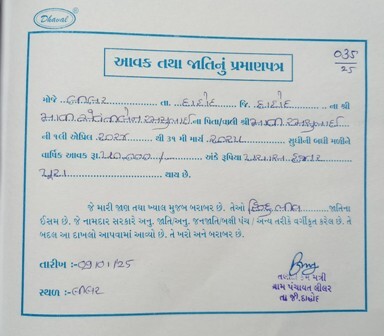 Dhaval ®
આવક તથા જાતિનું પ્રમાણપત્ર
035/25
મોજે લીલર તા. દાહોદ જિ. દાહોદ ના શ્રી
ના પિતા/વાલી શ્રી
ની ૧લી એપ્રિલ ૨૦૨૪ થી ૩૧ મી માર્ચ ૨૦૨૫ સુધીની બધી મળીને
વાર્ષિક આવક રૂા. /- અંકે રૂપિયા હજાર
પુરા થાય છે.
જે મારી જાણ તથા ખ્યાલ મુજબ બરાબર છે. તેઓ જાતિના
ઈસમ છે. જે નામદાર સરકારે અનુ. જાતિ/અનુ. જનજાતિ/બક્ષી પંચ / અન્ય તરીકે વર્ગીકૃત કરેલ છે. તે
બદલ આ દાખલો આપવામાં આવ્યો છે. તે ખરો અને બરાબર છે.
તારીખ :- 09/01/25
સ્થળ :- લીલર
તલાટી કમ મંત્રી
ગ્રામ પંચાયત લીલર
તા.જી. દાહોદ